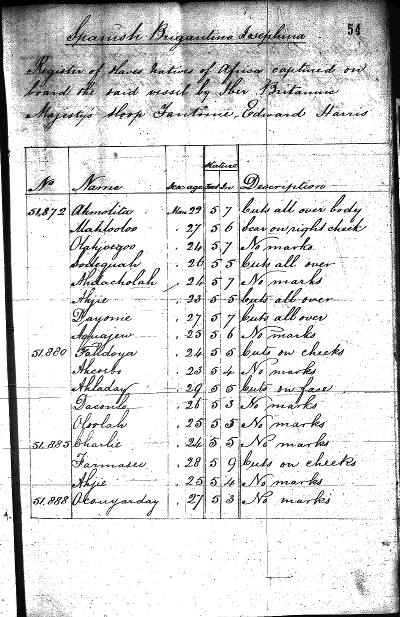 Spanish Brigantine Josephina 54
Register of slaves Natives of Africa captured on
board the said vessel by Her Britannic
Majesty's Sloop Fantome, Edward Harris
Stature
No Name Sex age Feet In Description
51,872 Ahmolita Man 29 5 7 Cuts all over body
Mahlooloo . 27 5 6 Scar on right cheek
. 24 5 7 No marks
. 26 5 5 Cuts all over
Ahdacholah . 24 5 7 No marks
Ahjie . 23 5 5 Cuts all over
Dayomie . 27 5 7 Cuts all over
. 25 5 6 No marks
51,880 Fahdoya . 24 5 5 Cuts on cheeks
Ahcorbo . 23 5 4 No marks
Ahladay . 29 5 5 Cuts on face
. 26 5 3 No marks
Ofoolah . 25 5 5 No marks
51,885 Charlie . 24 5 5 No marks
Farmasee . 28 5 9 Cuts on cheeks
Ahjie . 25 5 4 No marks
51,888 Ocouyarday . 27 5 3 No marks